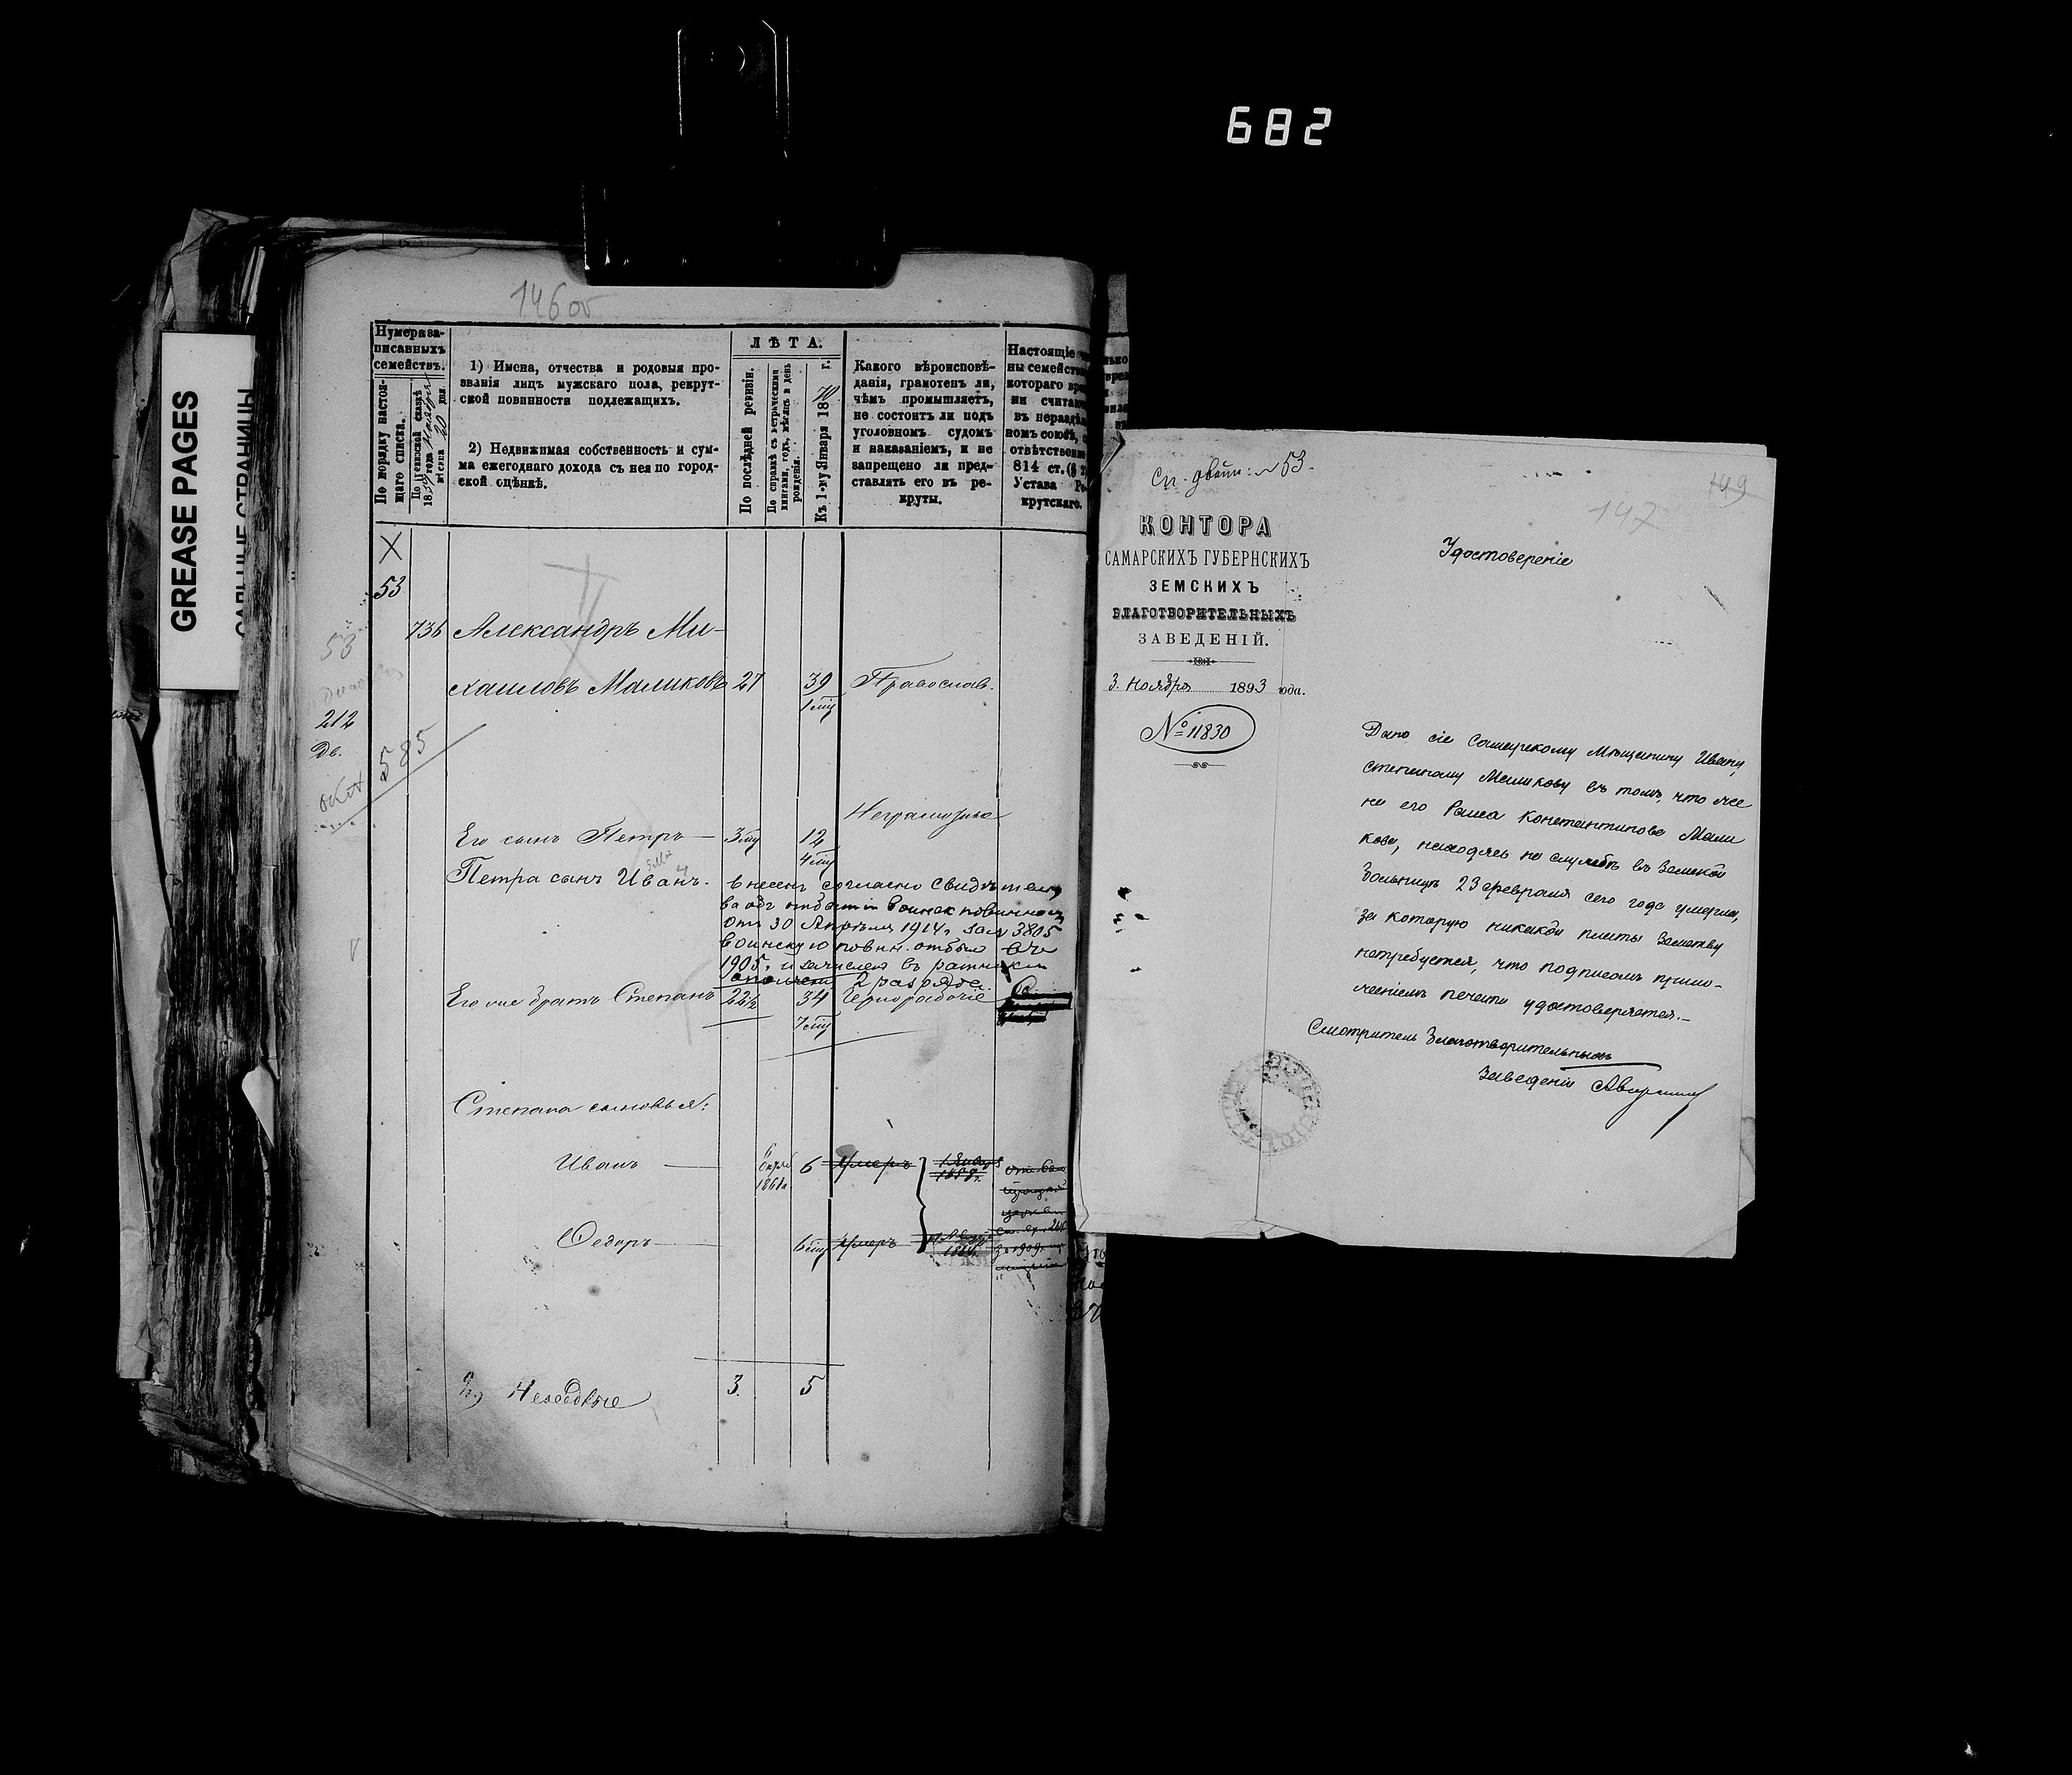 682
GREASE PAGES
САЛЬНЫЕ СТРАНИЦЫ
146 об
Нумера за-
писанныхъ
семействъ.
По порядку настоя-
щаго списка.
По ревизской сказкѣ
18 года
мѣсяца 20 дня
1) Имена, отчества и родовыя про-
званія лицъ мужскаго пола, рекрут-
ской повинности подлежащихъ.
2) Недвижимая собственность и сум-
ма ежегоднаго дохода съ нея по город-
ской оцѣнкѣ.
ЛѢТА.
По послѣдней ревизіи.
По справкѣ съ метрическими
книгами, годъ, мѣсяцъ и день
рожденія.
Къ 1-му Января 1870 г.
Какого вѣроисповѣ-
данія, грамотенъ ли,
чѣмъ промышляетъ,
не состоитъ ли подъ
уголовномъ судомъ
и наказаніемъ, и не
запрещено ли пред-
ставлять его въ ре-
круты.
Настоящіе
ны семейства
котораго
ни считаю
въ нераздѣ
номъ союзѣ,
отвѣтственно
814 ст.
Устава Ре
крутскаго.
X
53
736 Александръ Ми-
хаиловъ Маликовъ 27 39 Православ.
53
212
Дв.
585
Неграмотные
Его сынъ Петръ 3 12
Петра сынъ Иванъ.
внесенъ согласно свидѣтель
ва объ отбытіи воинск повинност
отъ 30 Апрѣля 1914 г. за № 3805
воинскую повин. отбылъ въ
1905 г. и зачисленъ въ ратники
ополчен 2 разряда.
Его же братъ Степанъ 22½ 34 Чернорабочіе
Степана сыновья:
Иванъ 6 умеръ
Федоръ умеръ
Неседлые 3. 5
Сп. двойн: № 53.
149
147
КОНТОРА
САМАРСКИХЪ ГУБЕРНСКИХЪ
ЗЕМСКИХЪ
БЛАГОТВОРИТЕЛЬНЫХЪ
ЗАВЕДЕНІЙ.
3. Ноября 1893 года.
№ 11830
Удостовереніе
Дано сіе Самарскому Мѣщанину Ивану
Степаному Маликову въ томъ, что же
на его Раиса Константинова Мали
кова, находясь на службѣ въ Земской
больницѣ 23 февраля сего года умерла,
за которую никакой платы Земству
нетребуется, что подписомъ прило-
женіемъ печати удостоверяется.-
Смотритель Благотворительныхъ
Заведеній